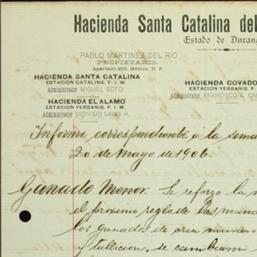 Hacienda Santa Catalina del
Estado de Duran
PABLO MARTINEZ DEL RIO
PROPIETARIO.
Apartado 250, México, D. F.
HACIENDA SANTA CATALINA
ESTACION CATALINA, F. I. M.
Administrador MIGUEL SOTO.
HACIENDA COVADO
ESTACION YERBANIS, F.
Administrador FRANCISCO A. C
HACIENDA EL ALAMO
ESTACION YERBANIS, F. I. M.
Administrador DIONISIO
Informe correspondiente a la sema
20 de Mayo de 1906.
Ganado Menor. Se reforzo la
el proximo regla de las
los ganados de cria
y tullicion, se cambiaron